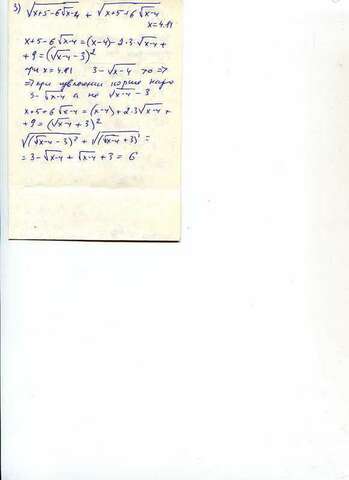 3) √(x+5-6√(x-4)) + √(x+5+6√(x-4))
x=4.11
x+5-6√(x-4) = (x-4)-2·3·√(x-4) +
+9=(√(x-4) -3)²
при x=4.11 3-√(x-4) >0 =>
=> при извлечении корня надо
3-√(x-4) а не √(x-4) -3
x+5+6√(x-4) = (x-4)+2·3√(x-4) +
+9=(√(x-4) +3)²
√((√(x-4) -3)²) + √((√(x-4) +3)²) =
= 3-√(x-4) + √(x-4) +3 = 6